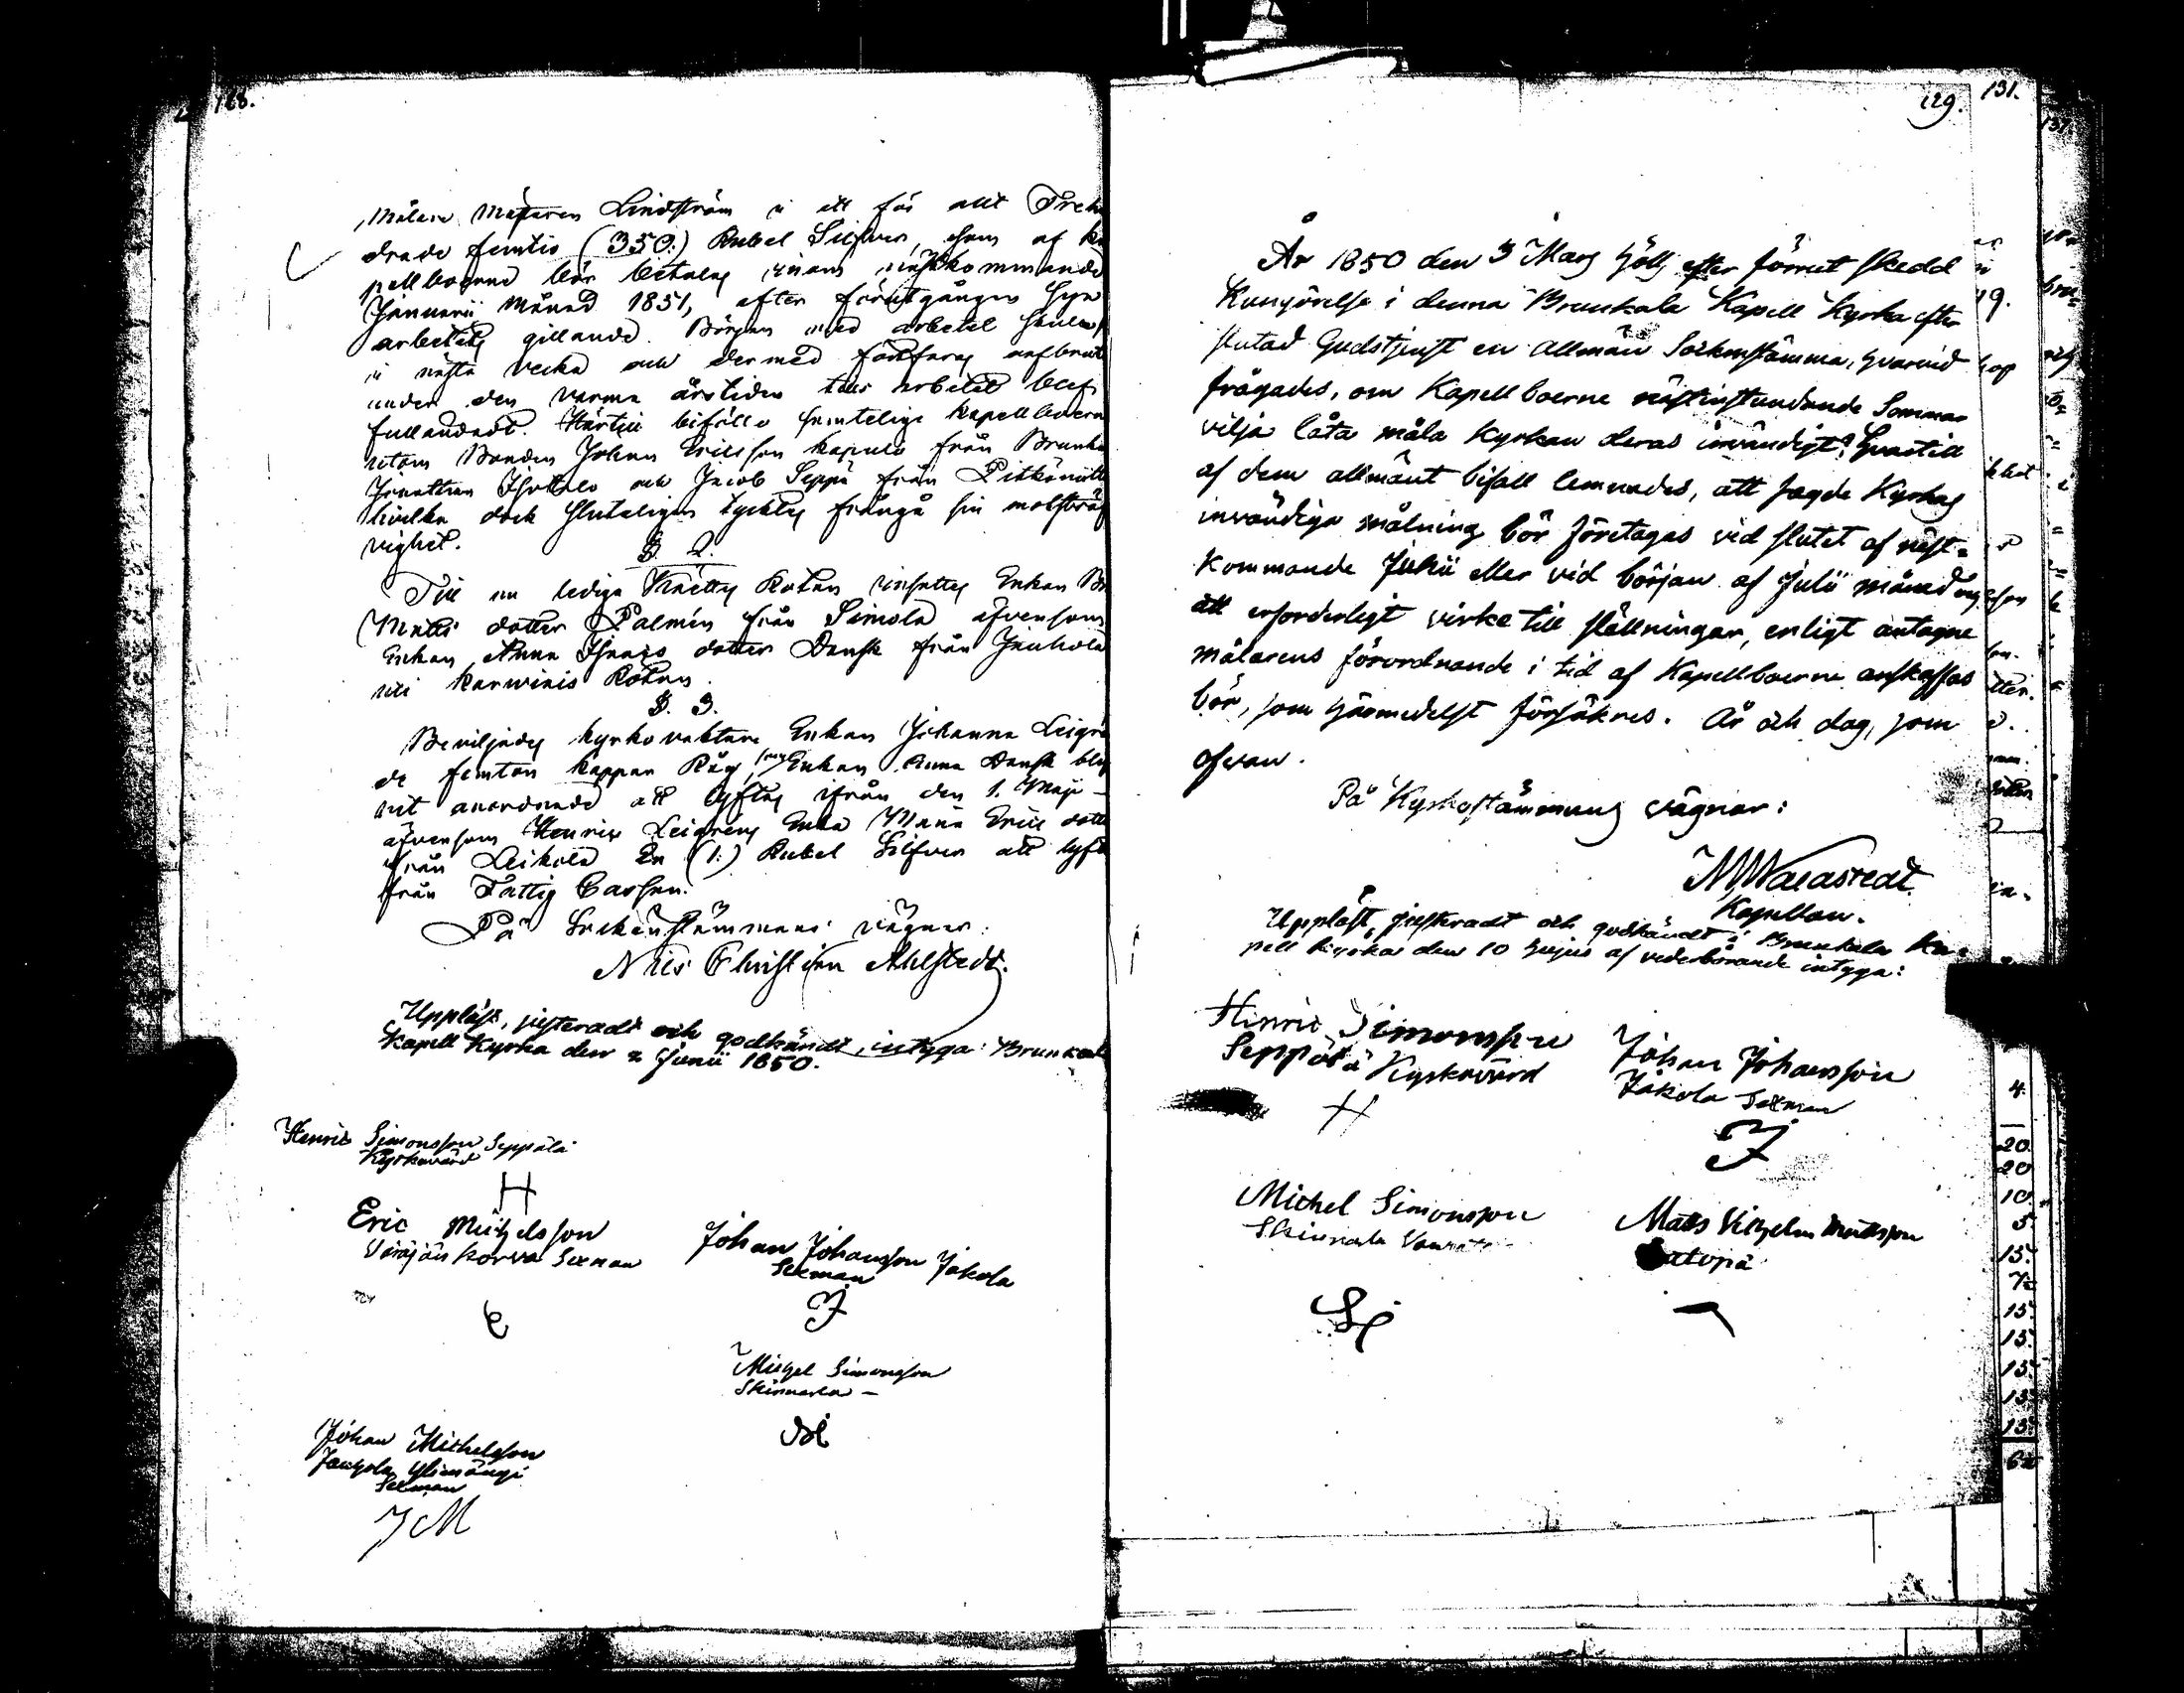 128.
Målare Mästaren Lindström u att för allt Trehun
drade femtio (350.) Rubel Silfver, som af Ka
pellboerne bör betalas innom nästkommande
Januarii Månad 1851, efter förutgången syn
arbetets gillande. Början med arbetet
i nästa vecka och dermed fortfaras oafbrutit
under den varma årstiden tills arbetet blef
fulländadt. Härtill biföllo samtelige Kapellboerne
utom Bonden Johan Ericsson Kapulo från Brunka
Jonathan Isotalo och Jacob Seppä från Pitkänitt
hvilka dock sluteligen tycktes frångå sin motsträf
vighet.
§. 2.
Till en lediga Knätty Rotan insattes Enkan
Matts dotter Palmén från Simola äfvensom
Enkan Anna Isaacs dotter Dansk från Jauhola
till Karwinis Rotan.
§. 3.
Beviljades kyrkovaktare Enkan Johanna Leigré
de femton kappar Råg, som Enkan Anna Dansk bli
vit anordnade att lyftas ifrån den 1. Maji
äfvensom Henric Leigréns Enka Maria Erics dott
från Leikola En (1.) Rubel Silfver att lyft
från Fattig Cassan.
På Sockenstämmans vägnar:
Nils Christian Ahlstedt.
Uppläst, justeradt och godkändt, intyga: Brunkala
Kapell Kyrka den 2 Junii 1850.
Henric Simonsson Seppälä
Kyrkovärd
H
Eric Michelsson
Väräjänkorva Sexman
E
Johan Johansson Jakola
Sexman
J
Michel Simonsson
Skinnarla
Johan Michelsson
Jauhola Ylimängi
Sexman
JM
129.
År 1850 den 3 Mars hölls efter förrut skedd
Kungörelse i denna Brunkala Kapell Kyrka efter
slutad Gudstjenst en allmän Sockenstämma, hvarvid
frågades, om Kapellboerne nästinstundande Sommar
vilja låta måla Kyrkan deras invändigt? Hvartill
af dem allmänt bifall lemnades, att sagde Kyrkas
invändiga målning bör företagas vid slutet af näst-
kommande Junii eller vid början af Julii månad och
att erforderligt virke till ställningar, enligt antagne
målarens förordnande i tid af Kapellboerne anskaffas
bör, som härmedelst försäkres. År och dag, som
ofvan.
På Kyrkostämmans vägnar:
Kapellan.
Uppläst, justeradt och godkändt i Brunkala Ka-
pell Kyrka den 10 hujus af vederbörande intyga:
Henric Simonsson
Seppälä Kyrkovärd
H
Johan Johansson
Jakola Sexman
J
Michel Simonsson
Skinnarla
Mats Vilhelm Mattsson
Satopä
131.
4.
20
20
10
5.
15.
15.
15.
15.
15.
15.